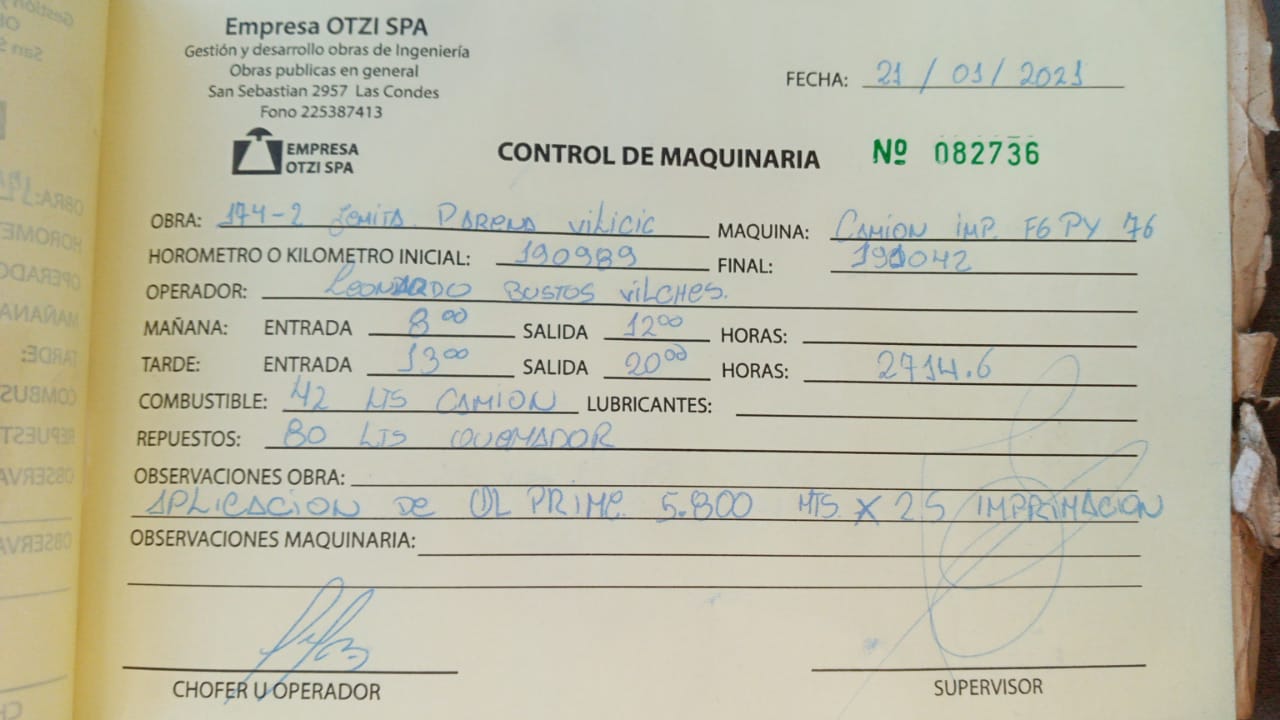 Empresa OTZI SPA
Gestión y desarrollo obras de Ingeniería
Obras publicas en general
San Sebastian 2957 Las Condes
Fono 225387413
EMPRESA
OTZI SPA
FECHA: 21 / 01 / 2021
CONTROL DE MAQUINARIA Nº 082736
OBRA: 174-2 Lomita Parena Vilicic MAQUINA: Camion imp. FG PY 76
HOROMETRO O KILOMETRO INICIAL: 190989 FINAL: 191042
OPERADOR: Leonardo Bustos Vilches.
MAÑANA: ENTRADA 8 00 SALIDA 12 00 HORAS:
TARDE: ENTRADA 13 00 SALIDA 20 00 HORAS: 2714.6
COMBUSTIBLE: 42 LTS CAMION LUBRICANTES:
REPUESTOS: 80 LTS QUEMADOR
OBSERVACIONES OBRA:
APLICACION de OL PRIME 5.800 MTS X 25 IMPRIMACION
OBSERVACIONES MAQUINARIA:
CHOFER U OPERADOR SUPERVISOR